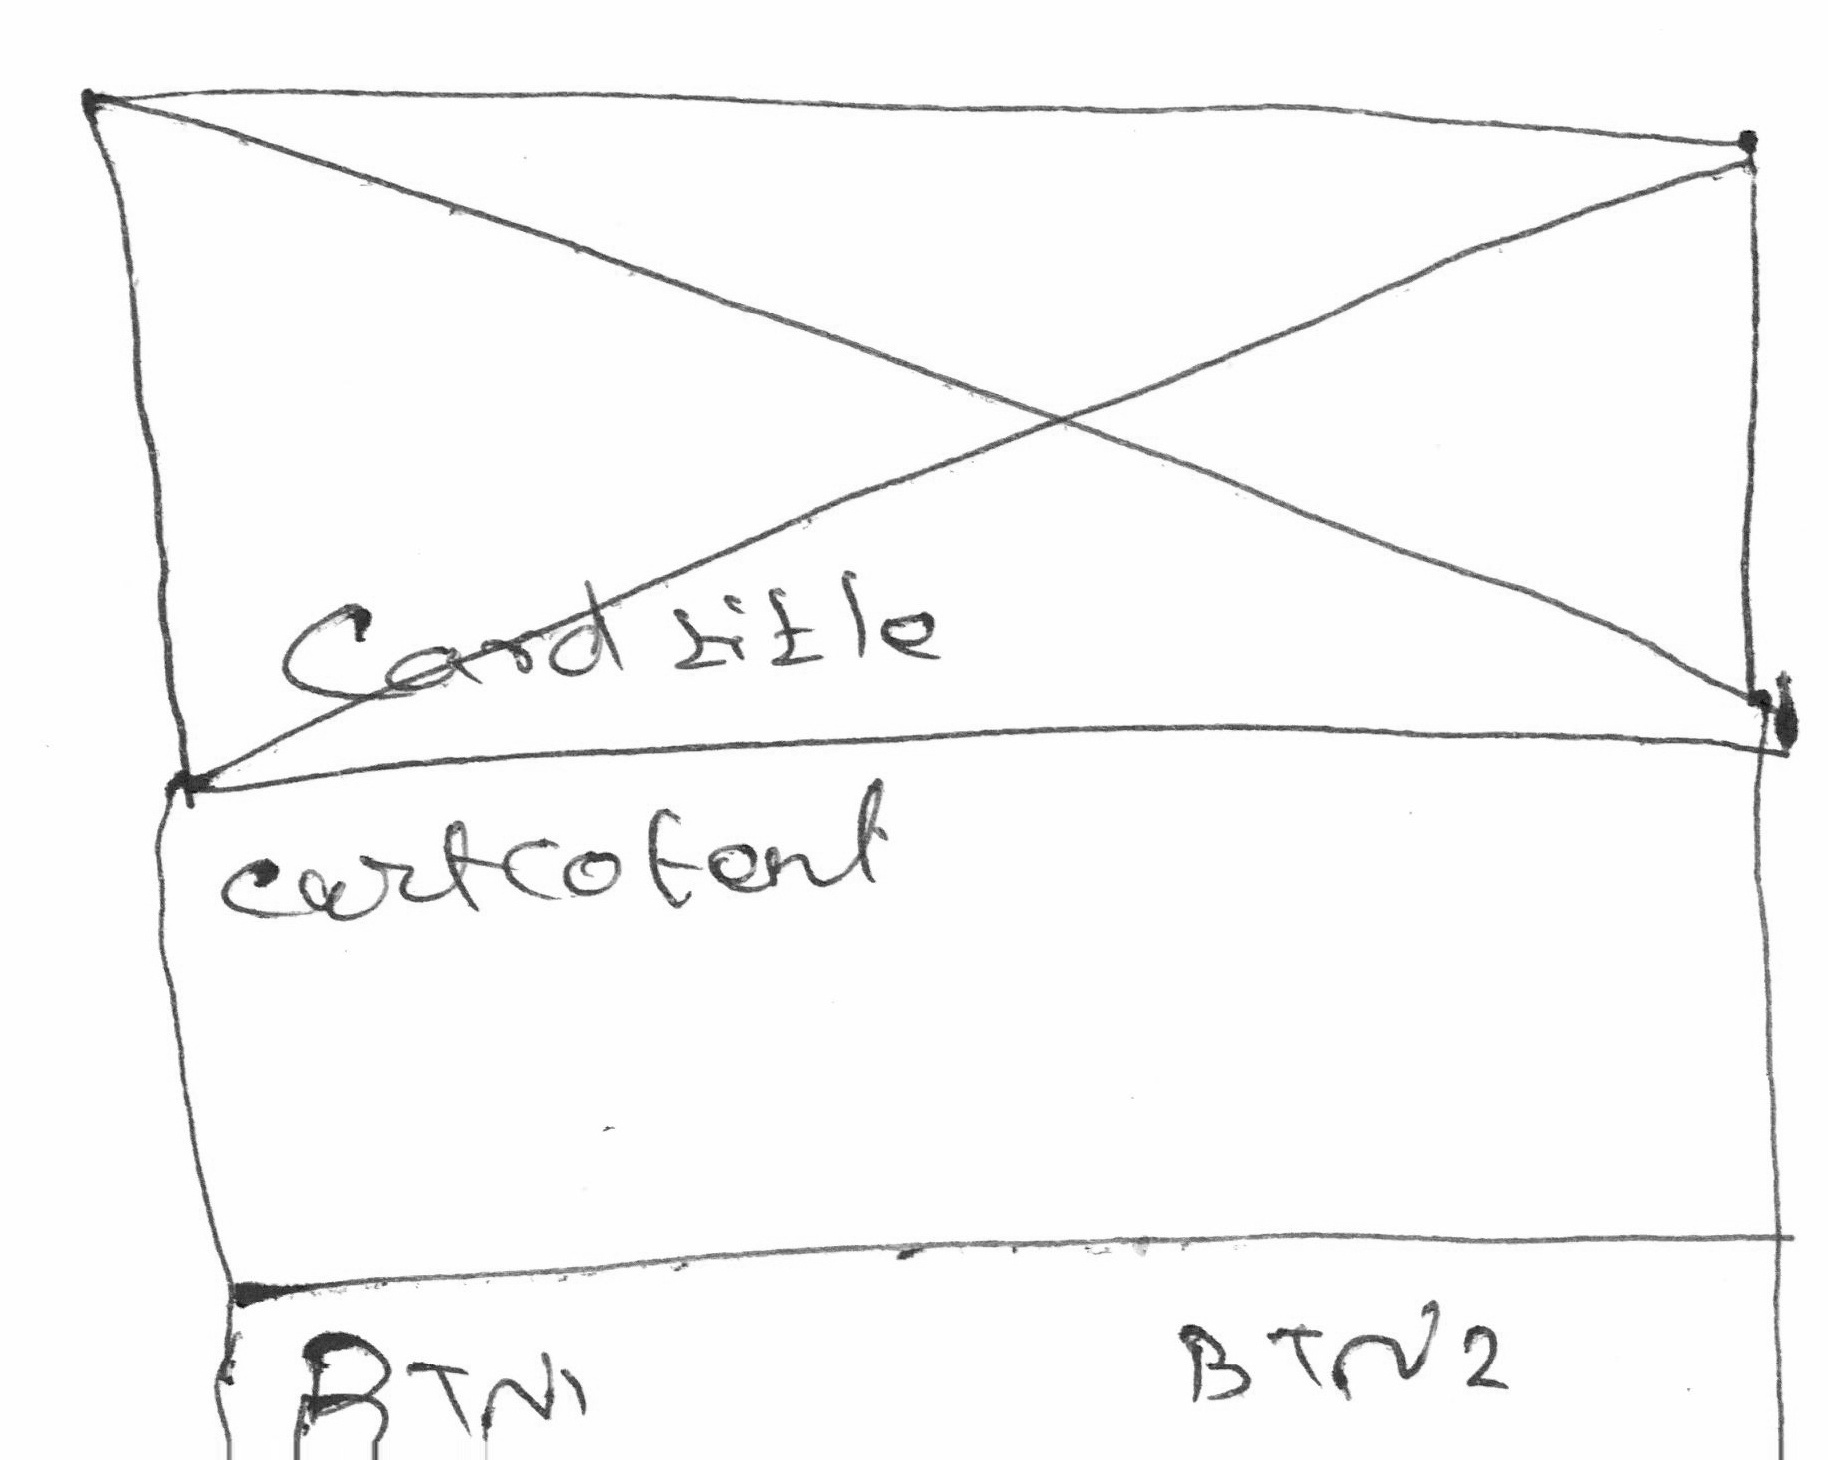 Card title
cartcotent
BTN1 BTN2